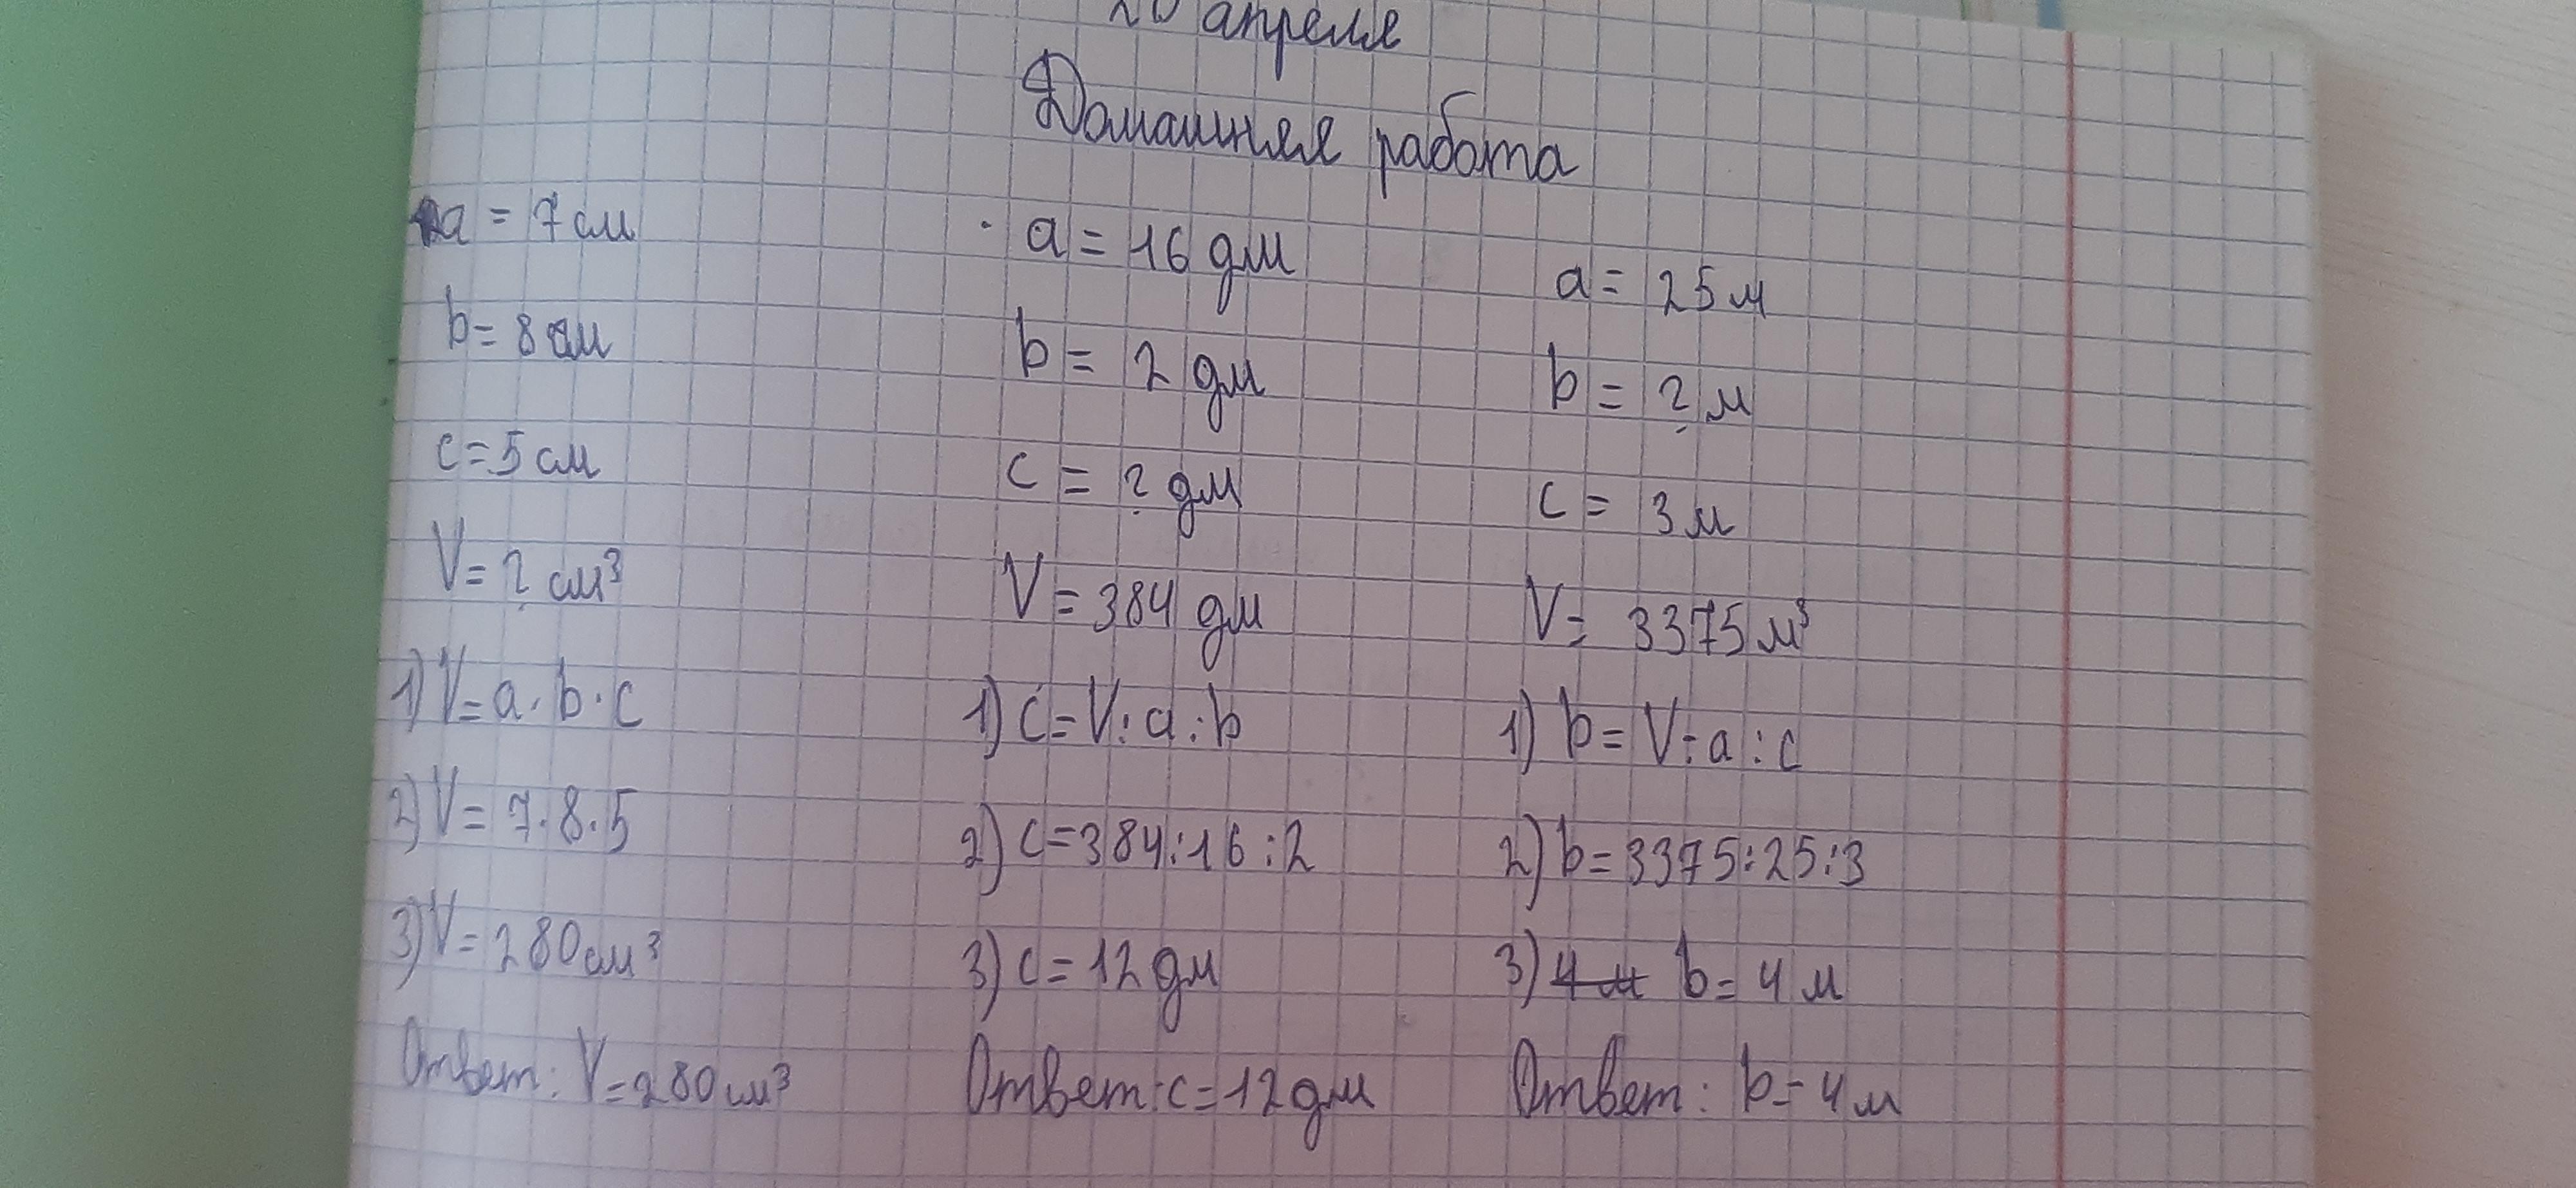 20 апреля
Домашняя работа
a = 7 см
b = 8 см
c = 5 см
V = ? см³
1) V = a · b · c
2) V = 7 · 8 · 5
3) V = 280 см³
Ответ: V = 280 см³
a = 16 дм
b = 2 дм
c = ? дм
V = 384 дм
1) c = V : a : b
2) c = 384 : 16 : 2
3) c = 12 дм
Ответ: c = 12 дм
a = 25 м
b = ? м
c = 3 м
V = 3375 м³
1) b = V : a : c
2) b = 3375 : 25 : 3
3) 4 м b = 4 м
Ответ: b = 4 м